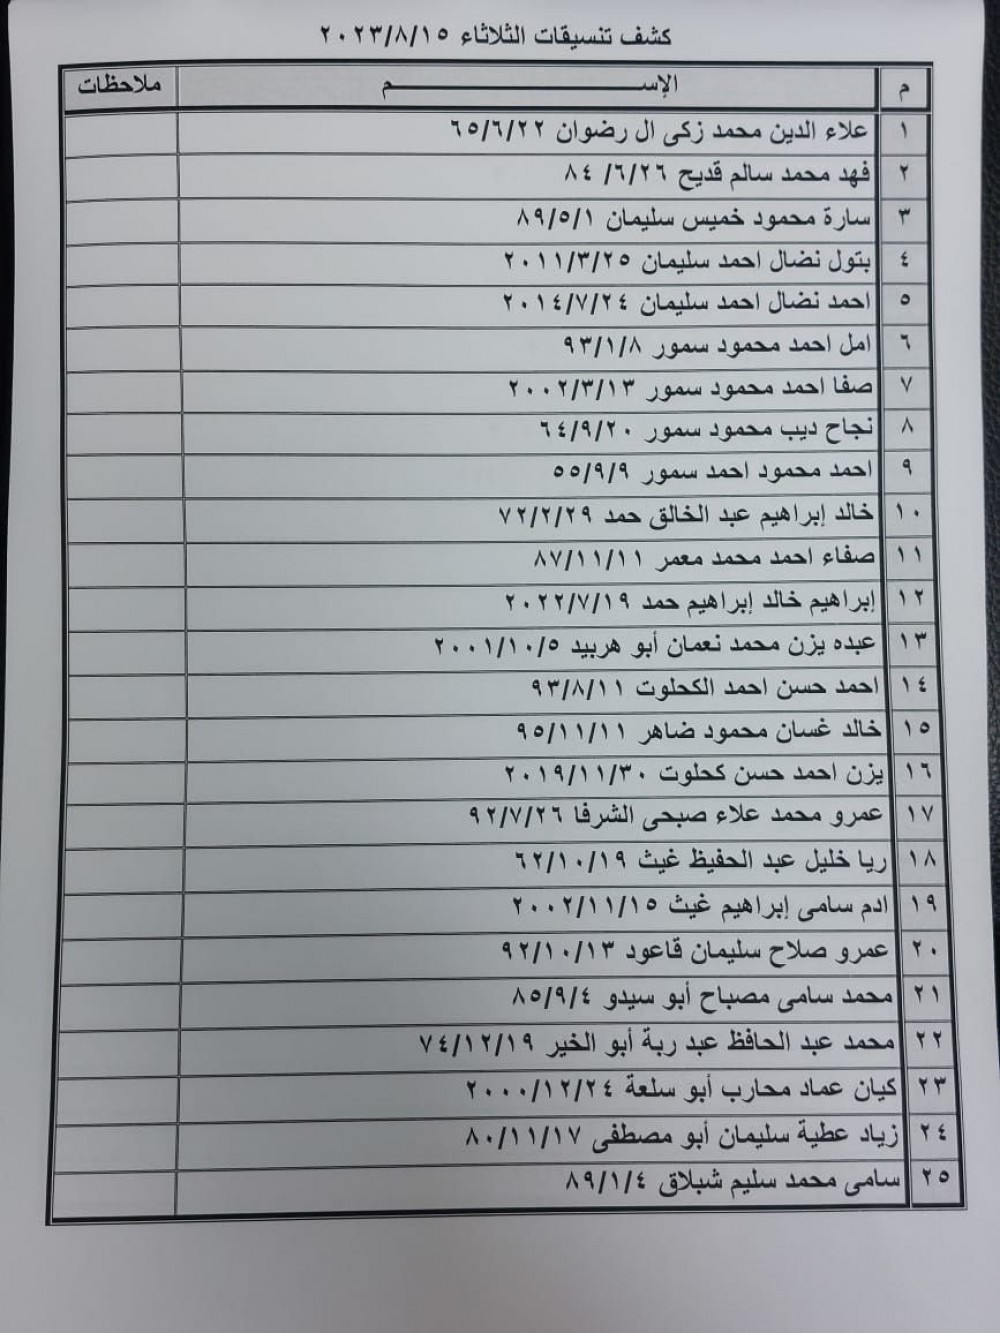 كشف تنسيقات الثلاثاء ٢٠٢٣/٨/١٥
م الإســـــــم ملاحظات
١ علاء الدين محمد زكى ال رضوان ٦٥/٦/٢٢
٢ فهد محمد سالم قديح ٨٤ /٦/٢٦
٣ سارة محمود خميس سليمان ٨٩/٥/١
٤ بتول نضال احمد سليمان ٢٠١١/٣/٢٥
٥ احمد نضال احمد سليمان ٢٠١٤/٧/٢٤
٦ امل احمد محمود سمور ٩٣/١/٨
٧ صفا احمد محمود سمور ٢٠٠٢/٣/١٣
٨ نجاح ديب محمود سمور ٦٤/٩/٢٠
٩ احمد محمود احمد سمور ٥٥/٩/٩
١٠ خالد إبراهيم عبد الخالق حمد ٧٢/٢/٢٩
١١ صفاء احمد محمد معمر ٨٧/١١/١١
١٢ إبراهيم خالد إبراهيم حمد ٢٠٢٢/٧/١٩
١٣ عبده يزن محمد نعمان أبو هربيد ٢٠٠١/١٠/٥
١٤ احمد حسن احمد الكحلوت ٩٣/٨/١١
١٥ خالد غسان محمود ضاهر ٩٥/١١/١١
١٦ يزن احمد حسن كحلوت ٢٠١٩/١١/٣٠
١٧ عمرو محمد علاء صبحى الشرفا ٩٢/٧/٢٦
١٨ ريا خليل عبد الحفيظ غيث ٦٢/١٠/١٩
١٩ ادم سامى إبراهيم غيث ٢٠٠٢/١١/١٥
٢٠ عمرو صلاح سليمان قاعود ٩٢/١٠/١٣
٢١ محمد سامى مصباح أبو سيدو ٨٥/٩/٤
٢٢ محمد عبد الحافظ عبد ربة أبو الخير ٧٤/١٢/١٩
٢٣ كيان عماد محارب أبو سلعة ٢٠٠٠/١٢/٢٤
٢٤ زياد عطية سليمان أبو مصطفى ٨٠/١١/١٧
٢٥ سامى محمد سليم شبلاق ٨٩/١/٤